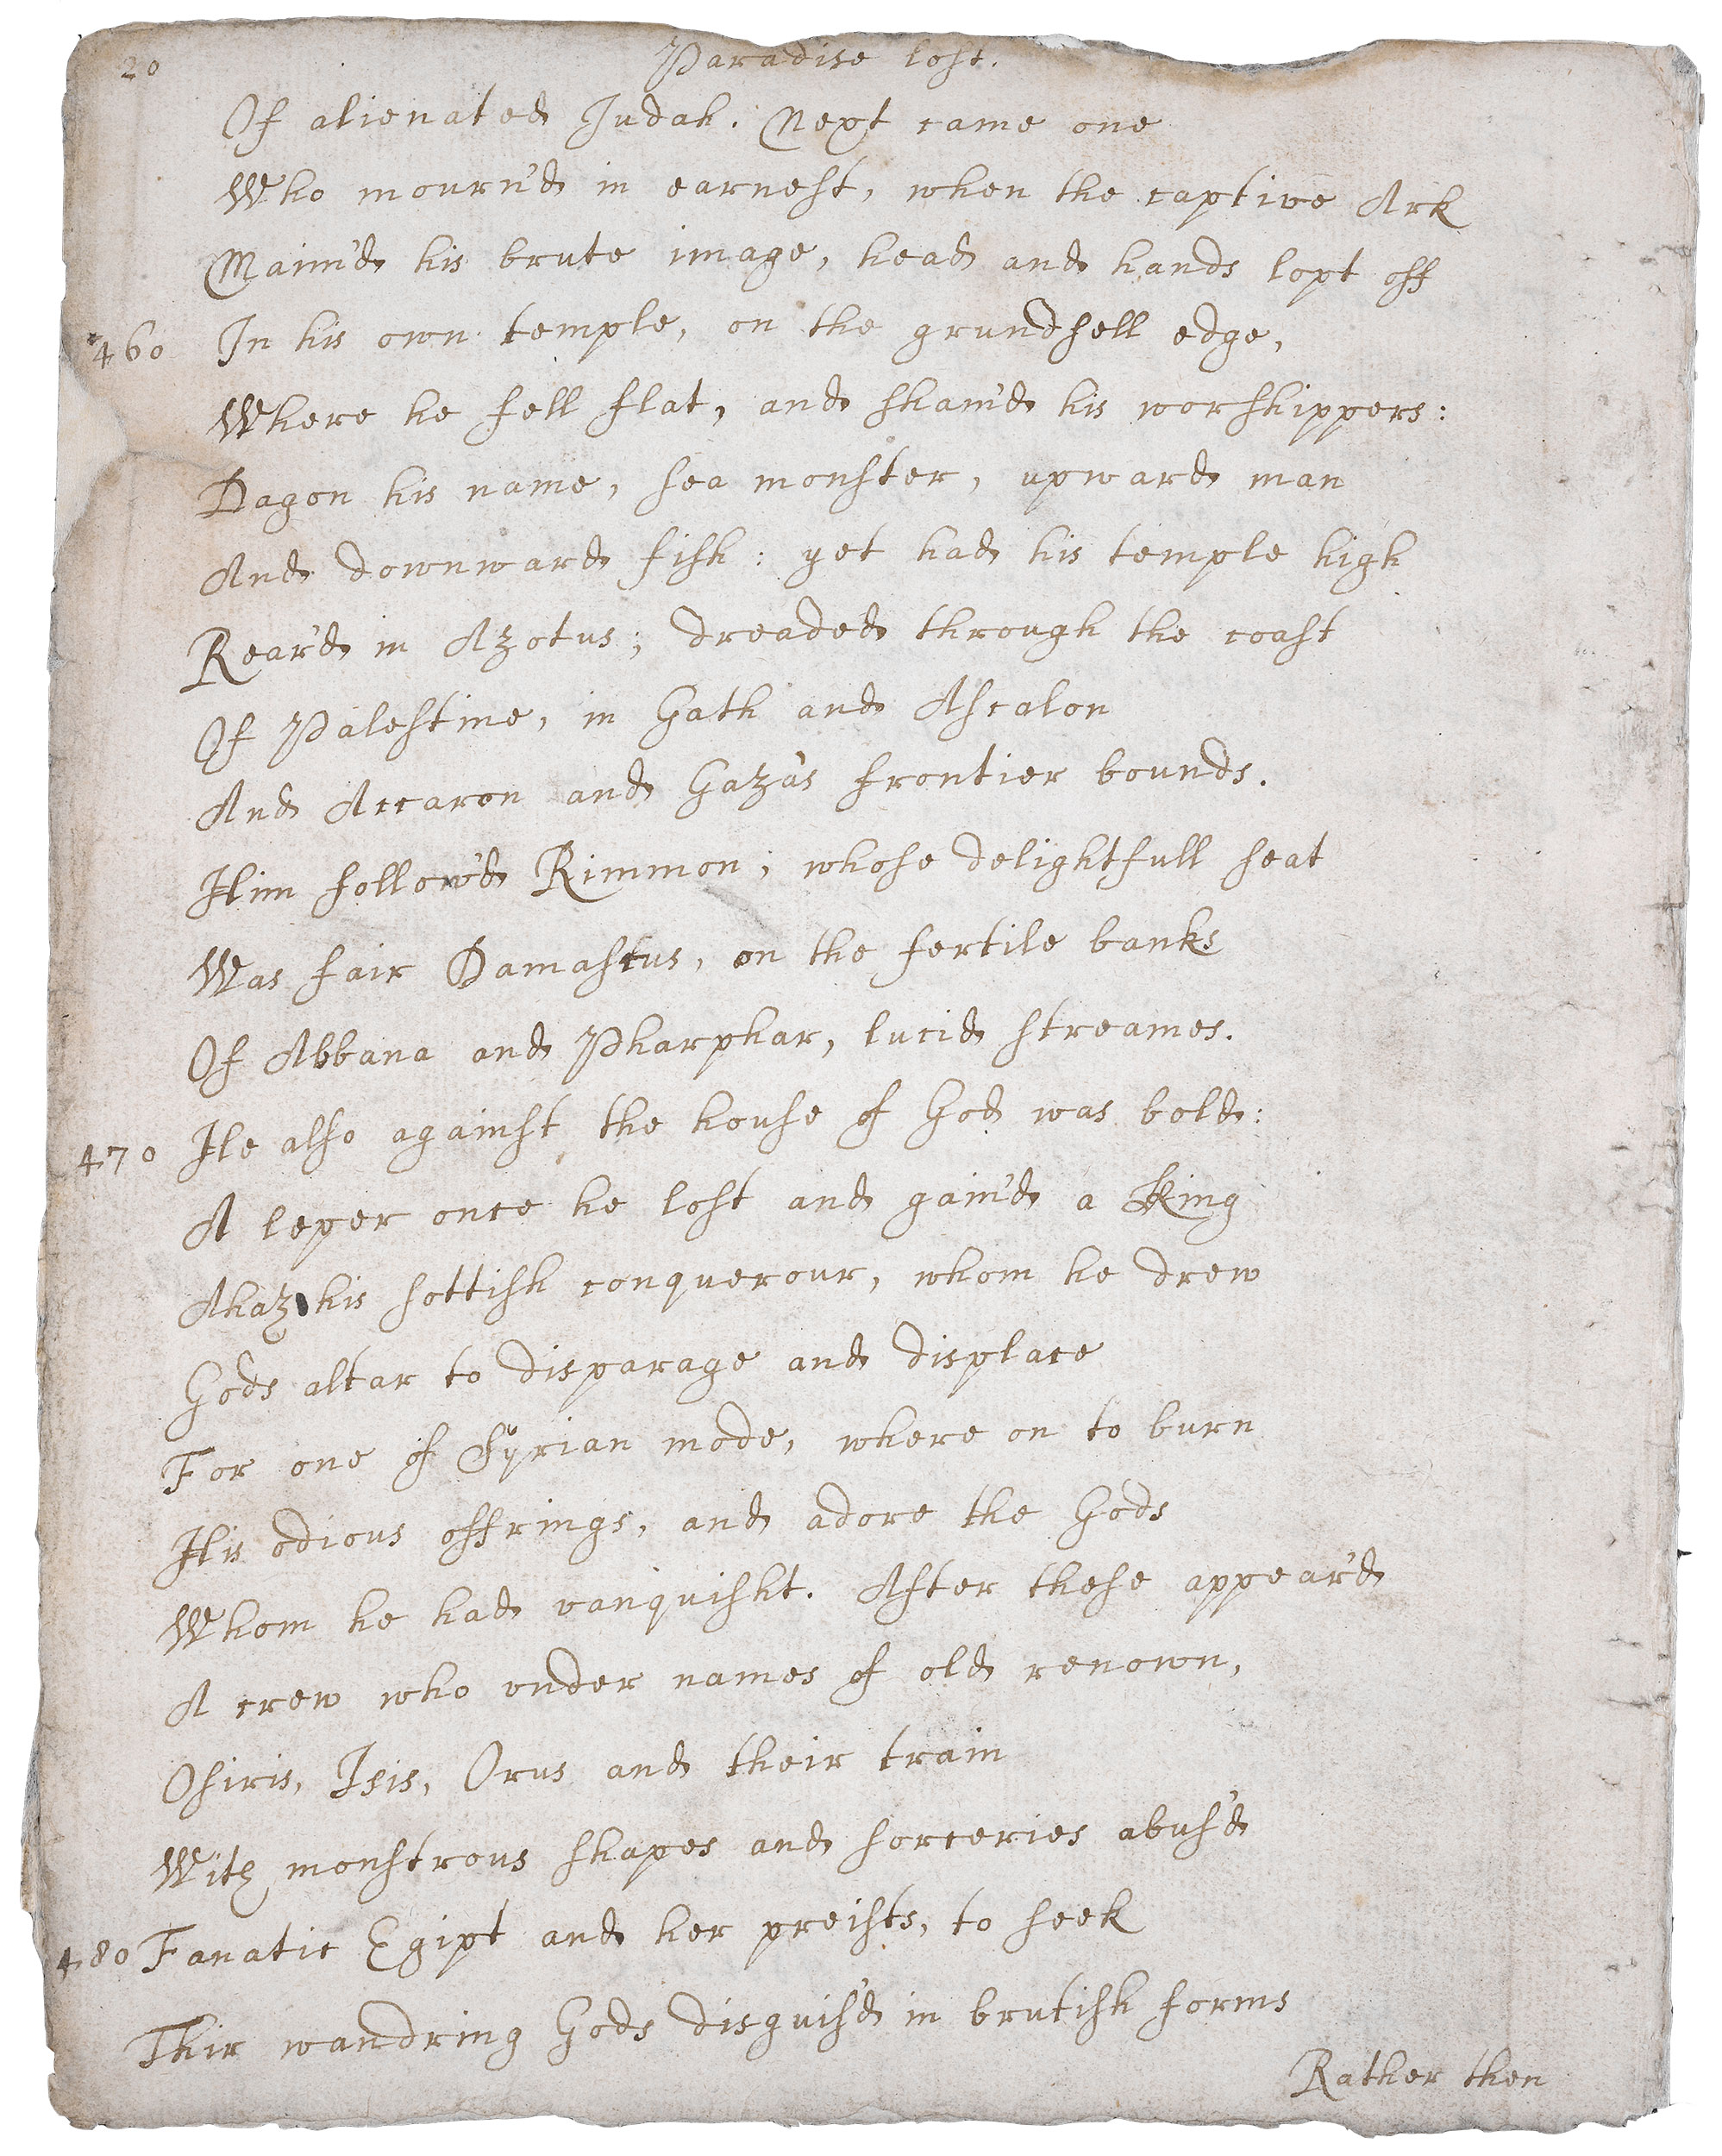 20 Paradise lost.
Of alienated Iudah. Next came one
Who mourn'd in earnest, when the captive Ark
Maim'd his brute image, head and hands lopt off
460 In his own temple, on the grundsell edge,
Where he fell flat, and sham'd his worshippers:
Dagon his name, sea monster, upward man
And downward fish: yet had his temple high
Rear'd in Azotus; dreaded through the coast
Of Palestine, in Gath and Ascalon
And Accaron and Gaza's frontier bounds.
Him follow'd Rimmon; whose delightfull seat
Was fair Damascus, on the fertile banks
Of Abbana and Pharphar, lucid streames.
470 He also against the house of God was bold:
A leper once he lost and gain'd a King
Ahaz his sottish conquerour, whom he drew
Gods altar to disparage and displace
For one of Syrian mode, where on to burn
His odious offrings, and adore the Gods
Whom he had vanquisht. After these appear'd
A crew who vnder names of old renown,
Osiris, Isis, Orus and their train
With monstrous shapes and sorceries abus'd
480 Fanatic Egipt and her preists, to seek
Thir wandring Gods disguis'd in brutish forms
Rather then